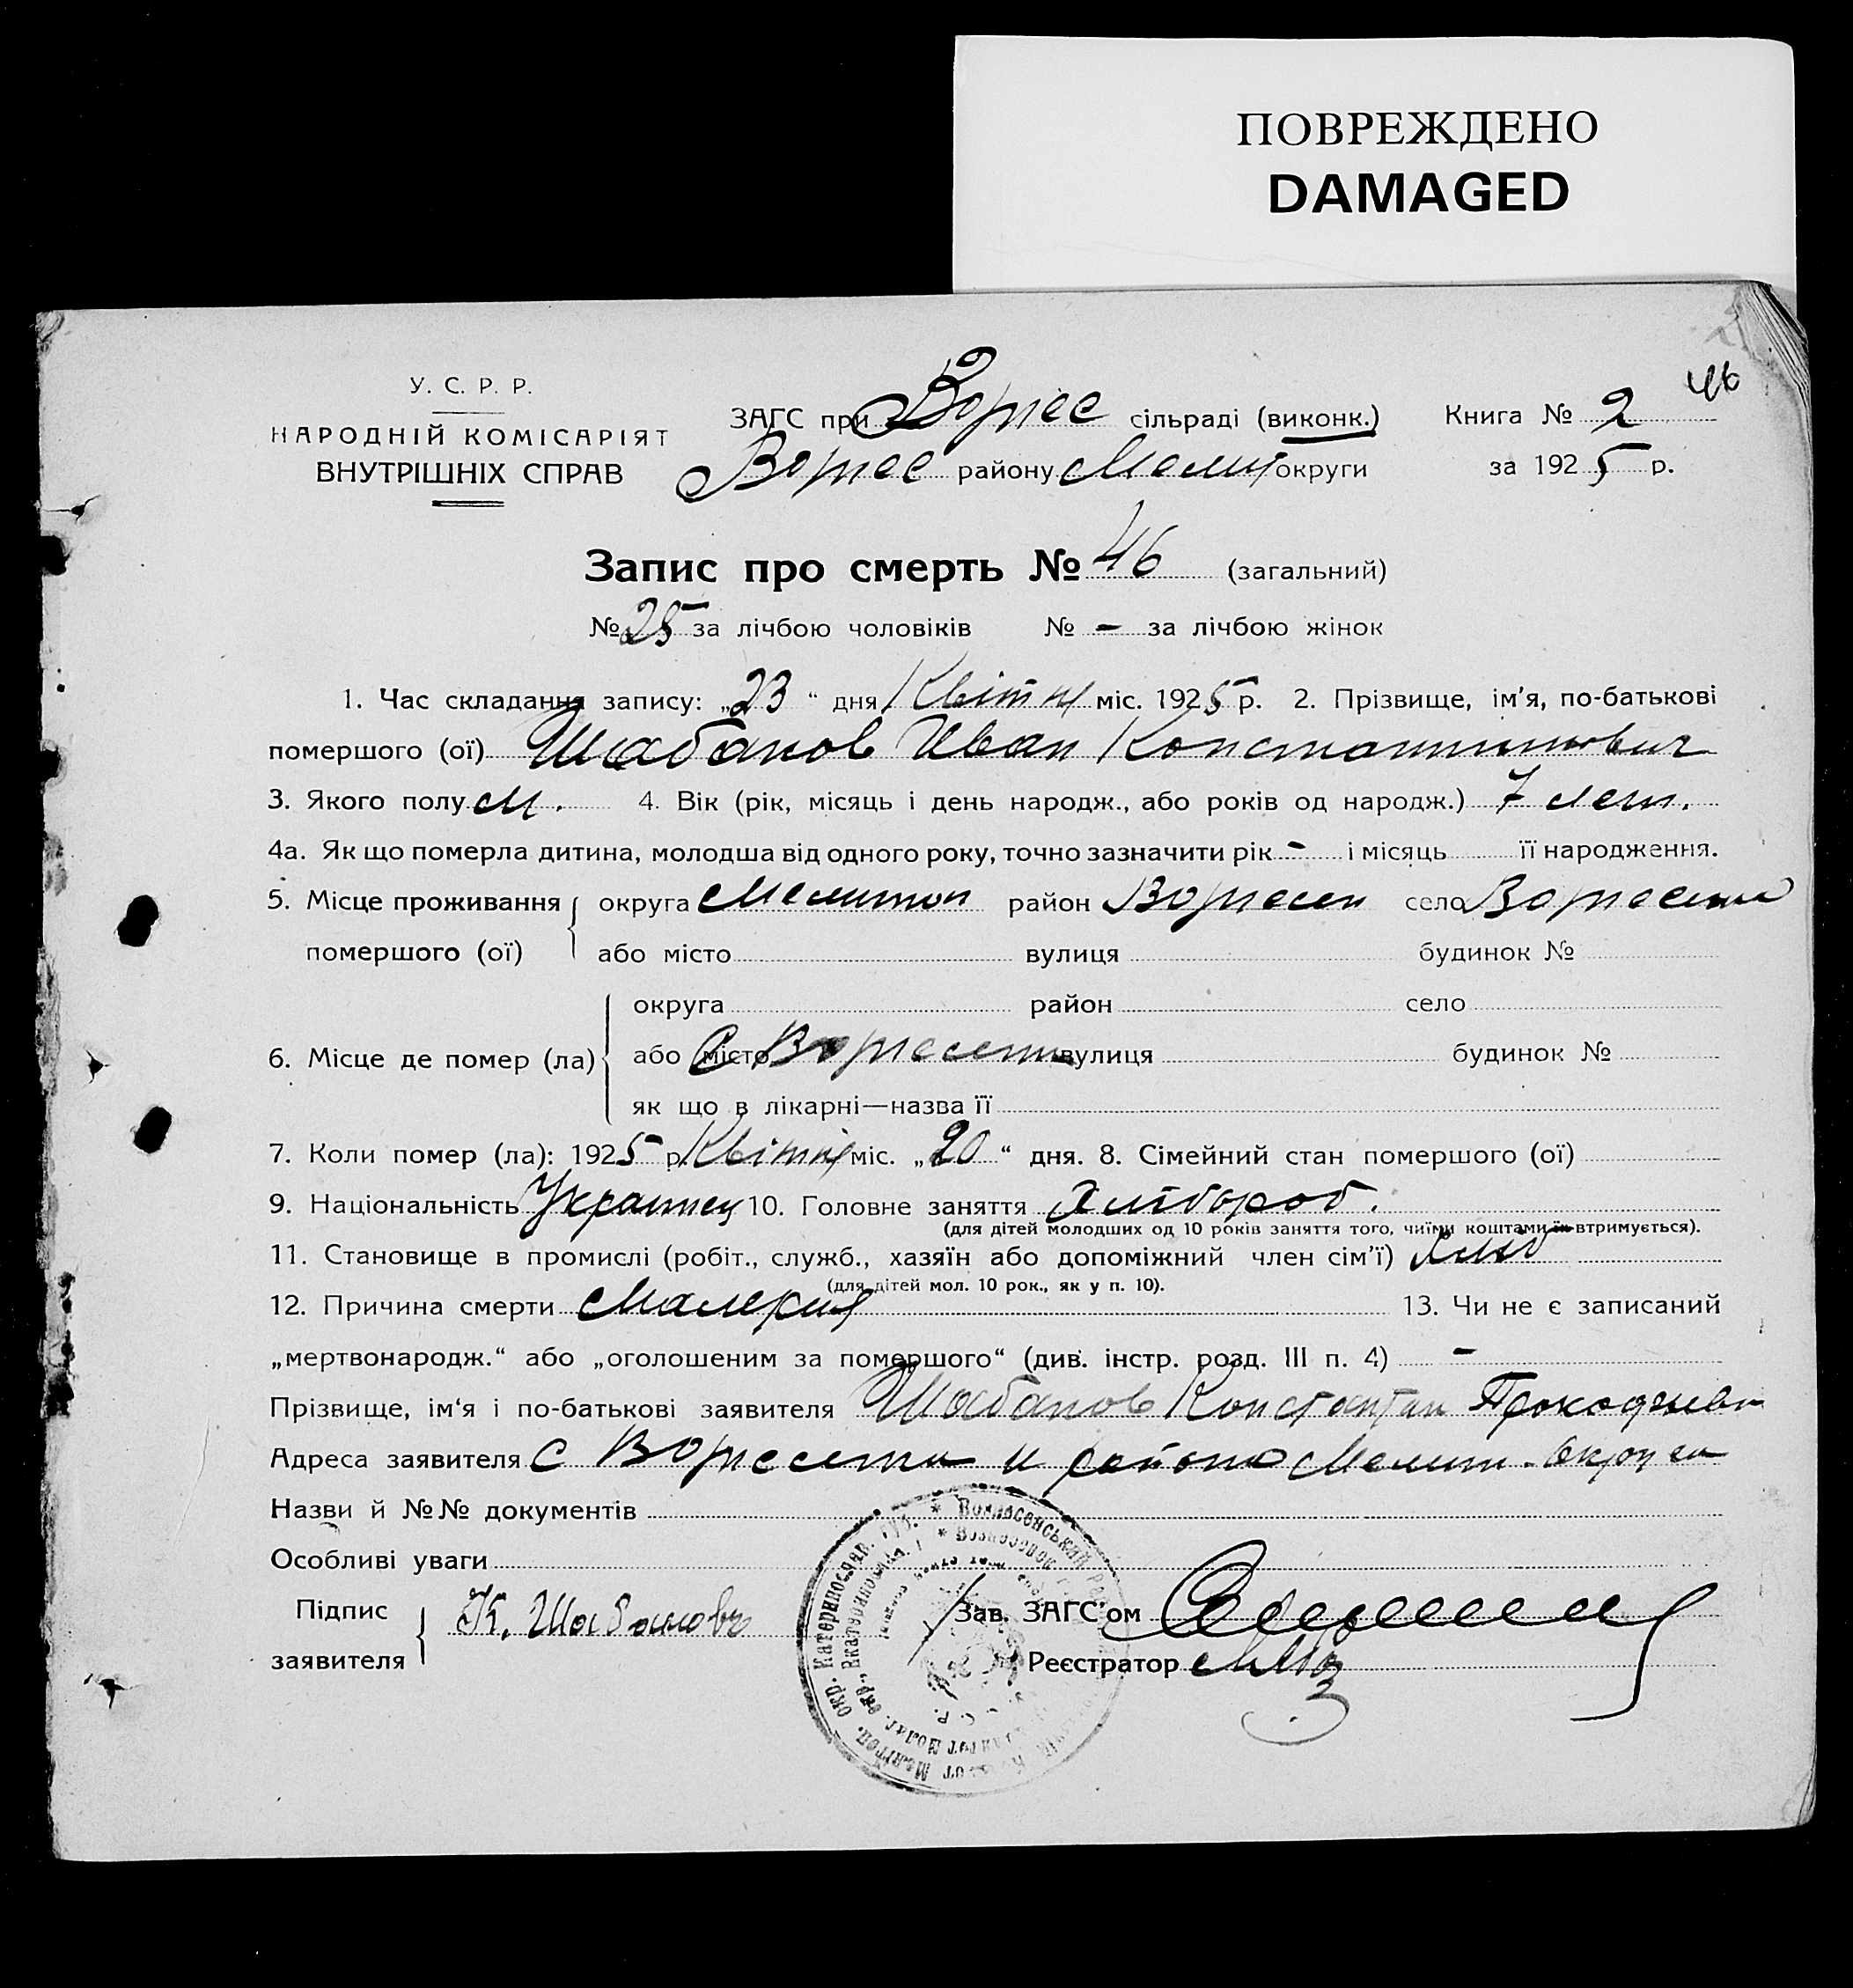 ПОВРЕЖДЕНО
DAMAGED
46
У. С. Р. Р.
НАРОДНІЙ КОМІСАРІЯТ
ВНУТРІШНІХ СПРАВ
ЗАГС при Вознес сільраді (виконк.) Книга № 2
Вознес району Мелит округи за 1925 р.
Запис про смерть № 46 (загальний)
№ 25 за лічбою чоловіків № - за лічбою жінок
1. Час складання запису: „23“ дня Квітня міс. 1925 р. 2. Прізвище, ім'я, по-батькові
помершого (ої) Шабанов Иван Константинович
3. Якого полу М. 4. Вік (рік, місяць і день народж., або років од народж.) 7 лет.
4а. Як що померла дитина, молодша від одного року, точно зазначити рік - і місяць її народження.
5. Місце проживання помершого (ої) округа Мелитоп район Вознесен село Вознесенка
або місто вулиця будинок №
6. Місце де помер (ла) округа район село
або місто С Вознесенка вулиця будинок №
як що в лікарні—назва її
7. Коли помер (ла): 1925 р. Квітня міс. „20“ дня. 8. Сімейний стан помершого (ої)
9. Національність Украинец 10. Головне заняття Хлібороб.
(для дітей молодших од 10 років заняття того, чиїми коштами їх втримується).
11. Становище в промислі (робіт., служб., хазяїн або допоміжний член сім'ї) Хліб
(для дітей мол. 10 рок., як у п. 10).
12. Причина смерти Малярия 13. Чи не є записаний
„мертвонародж.“ або „оголошеним за помершого“ (див. інстр. розд. III п. 4) -
Прізвище, ім'я і по-батькові заявителя Шабанов Константин
Адреса заявителя С Вознесенка района Мелит. Округа
Назви й №№ документів
Особливі уваги
Підпис заявителя К. Шабановъ
Зав. ЗАГС'ом
Реєстратор
Вознесенський
Мелітоп. окр. Катеринослав. губ.